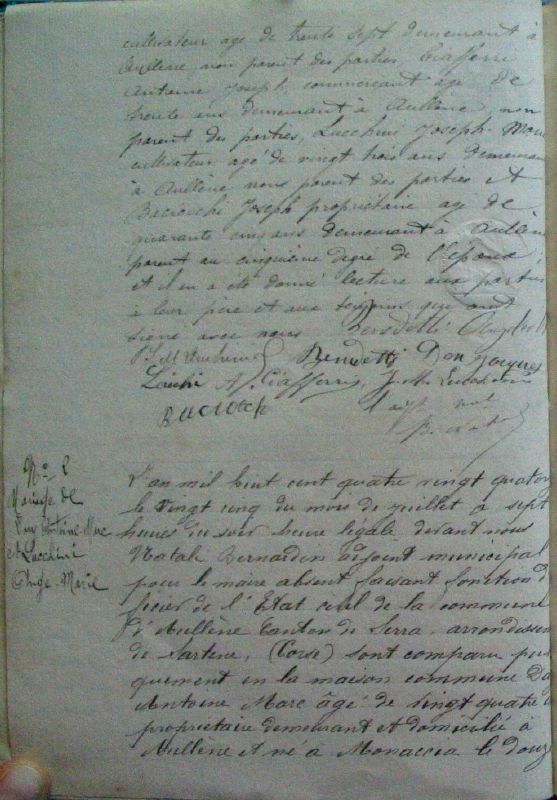 cultivateur age de trente sept demeurant à
Aullène non parent des parties, Ciafferri
Antoine Joseph, commercant age de
trente ans demeurant à Aullène, non
parent des parties, Lucchini Joseph Marie
cultivateur agé de vingt trois ans demeurant
à Aullène nons parent des parties et
Baciocchi Joseph propriétaire age de
quarante cinq ans demeurant a Aullène
parent au cinquième degré de l'épouse
et il en a été donné lecture aux parties
à leur père et aux témoins qui ont
signé avec nous Benedetti
Benedetti Don Jacques
A. Ciafferri
Baciocch
No 2
Mariage de
Antoine Marc
et Lucchini
Ange-Marie
L'an mil huit cent quatre vingt quatorz
le vingt cinq du mois de juillet à sept
heures du soir heure légale devant nous
Natali Bernardin adjoint municipal
pour le maire absent faisant fonction d
ficier de l'Etat civil de la commune
d'Aullène Canton de Serra, arrondissem
de Sartène, (Corse) sont comparu pu
quement en la maison commune
Antoine Marc âgé de vingt quatre
propriétaire demeurant et domicilié à
Aullène et né à Monaccia le douz